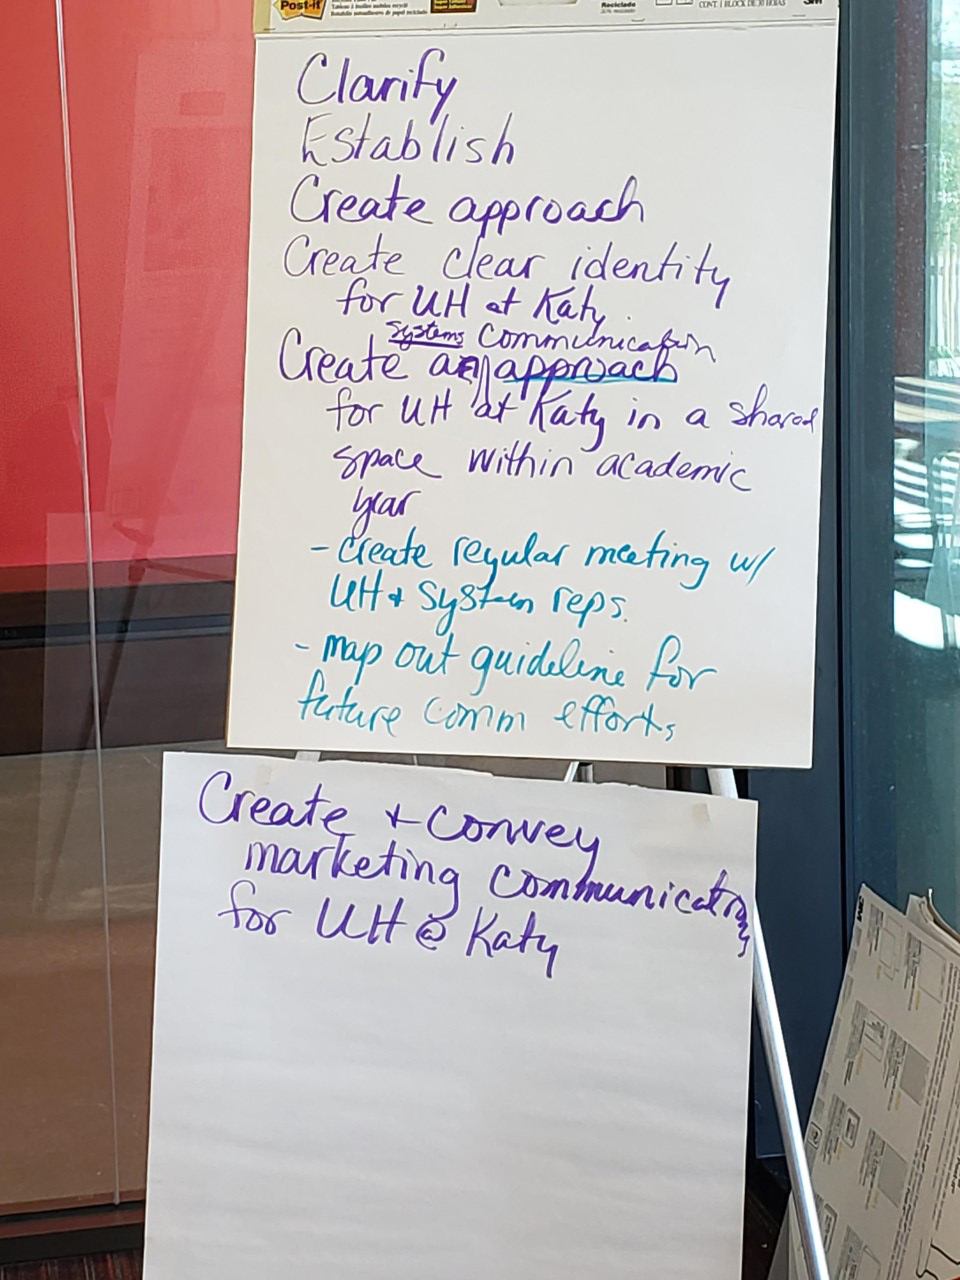 Post-it
Reciclado
CONT. 1 BLOCK DE 30 HOJAS
3M
Clarify
Establish
Create approach
Create clear identity
for UH at Katy.
Systems Communication
Create an approach
for UH at Katy in a shared
space within academic
year
- create regular meeting w/
UH + System reps.
- map out guideline for
future comm efforts
Create + convey
marketing communications
for UH @ Katy